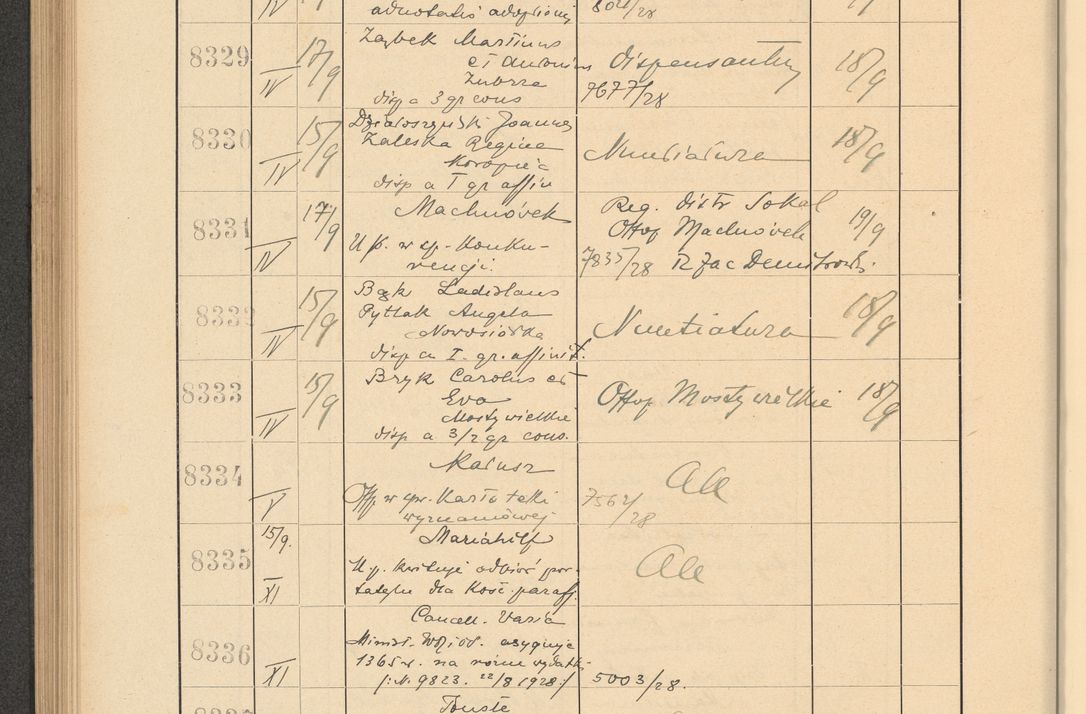 IV
8329
17/9
IV
Ząbek Martinus
et Antonina
Zubrza
disp a 3 gr cons
dispensantur
7677/28
18/9
8330
15/9
IV
Działoszyński Joannes
Zaleska Regina
Koropiec
disp a I gr affin
Nuntiatura
18/9
8331
17/9
IV
Machnówek
U p. w sp. Konku-
rencji.
Reg. distr Sokal
Offop Machnówek
7835/28
19/9
8332
15/9
IV
Bąk Ladislaus
Pytlak Angela
Nowosiółka
disp a I. gr. affinit.
Nuntiatura
18/9
8333
15/9
IV
Bryk Carolus et
Eva
Mosty wielkie
disp a 3/2 gr cons.
Offop Mosty wielkie
18/9
8334
V
Kałusz
w spr. Kartoteki
wyznaniowej
7562/28
8335
15/9.
XI
Mariahilf
U p. kwituje odbiór por-
tatylu dla Kość. paraf.
8336
XI
Cancell. Varia
Minist. W.R.i O.P. asygnuje
1365 zł. na różne wydatki
/:N. 9823. 22/8 1928:/
5003/28.
Touste